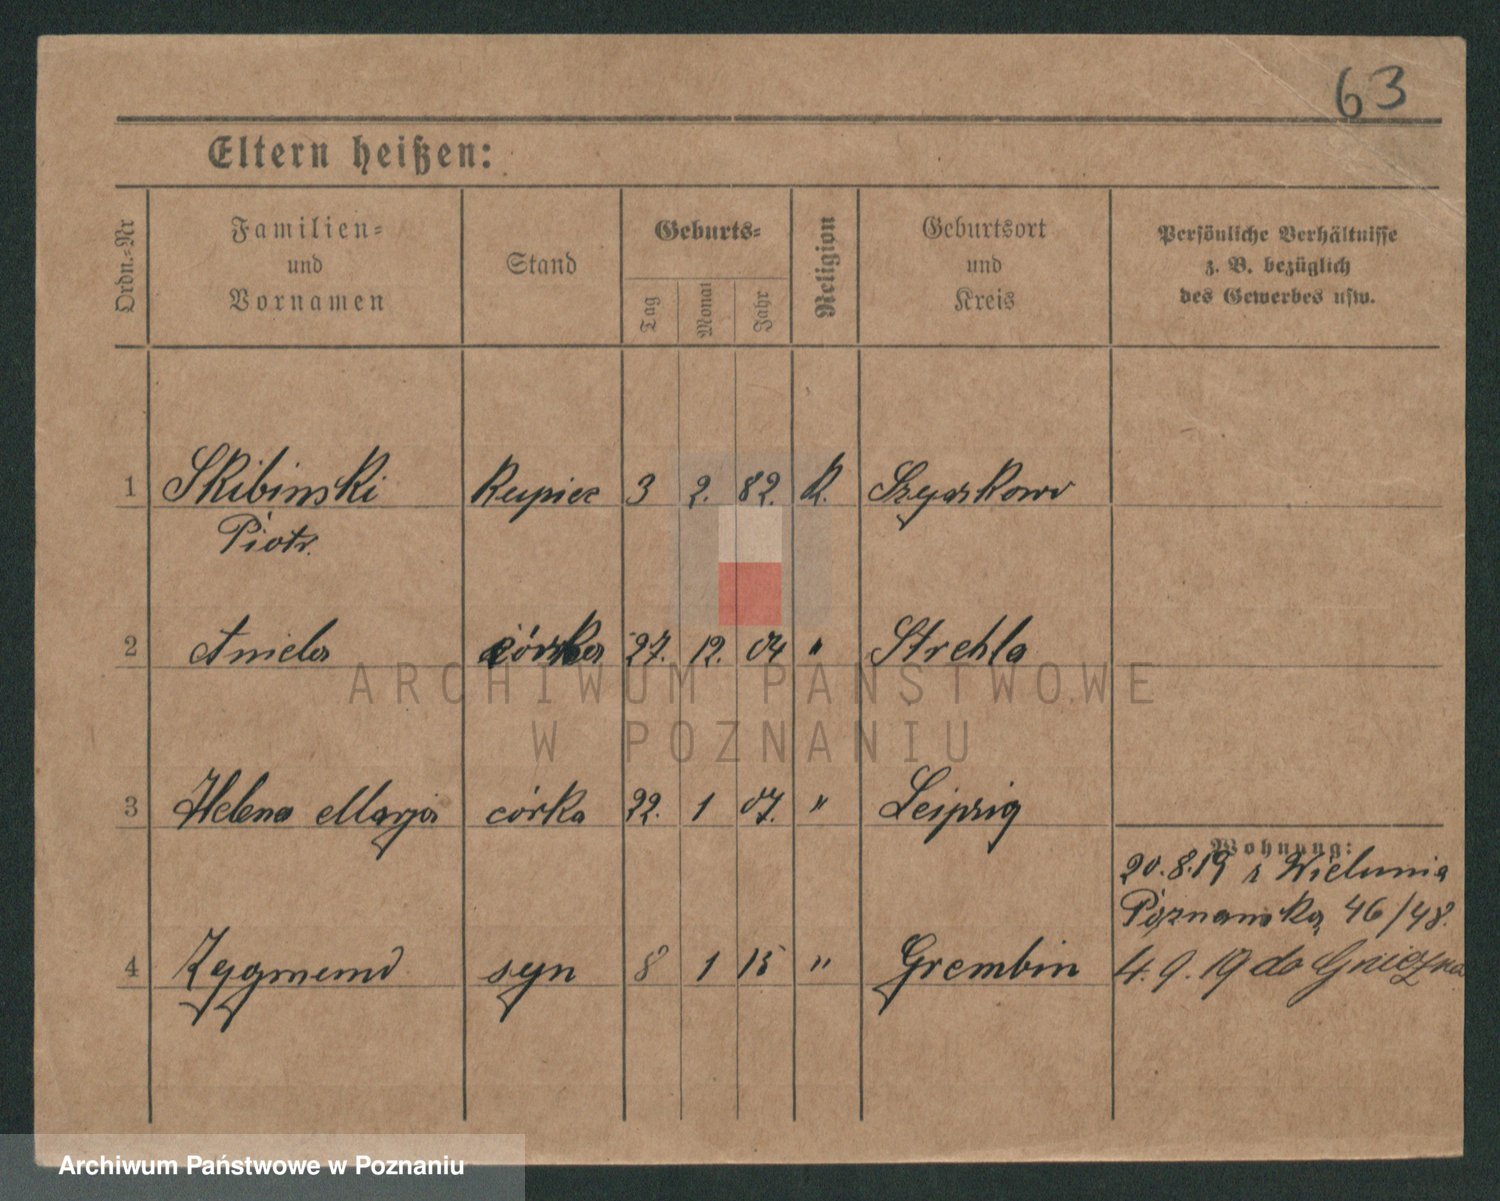 63
Eltern heißen:
Ordn.-Nr
Familien-
und
Vornamen
Stand
Geburts-
Tag
Monat
Jahr
Religion
Geburtsort
und
Kreis
Persönliche Verhältnisse
z. B. bezüglich
des Gewerbes usw.
1 Skibinski kupiec 3 2. 82. K.
Piotr.
2 Aniela córka 27. 12. 04 " Strehla
ARCHIWUM PAŃSTWOWE
W POZNANIU
3 Helena Marja córka 22. 1 07. " Leipzig
Wohnung:
20.8.19 z Wielunia
Poznańska 46/48.
4 Zygmund syn 8 1 15 " Grembin 4.9.19 do Gniezna
Archiwum Państwowe w Poznaniu